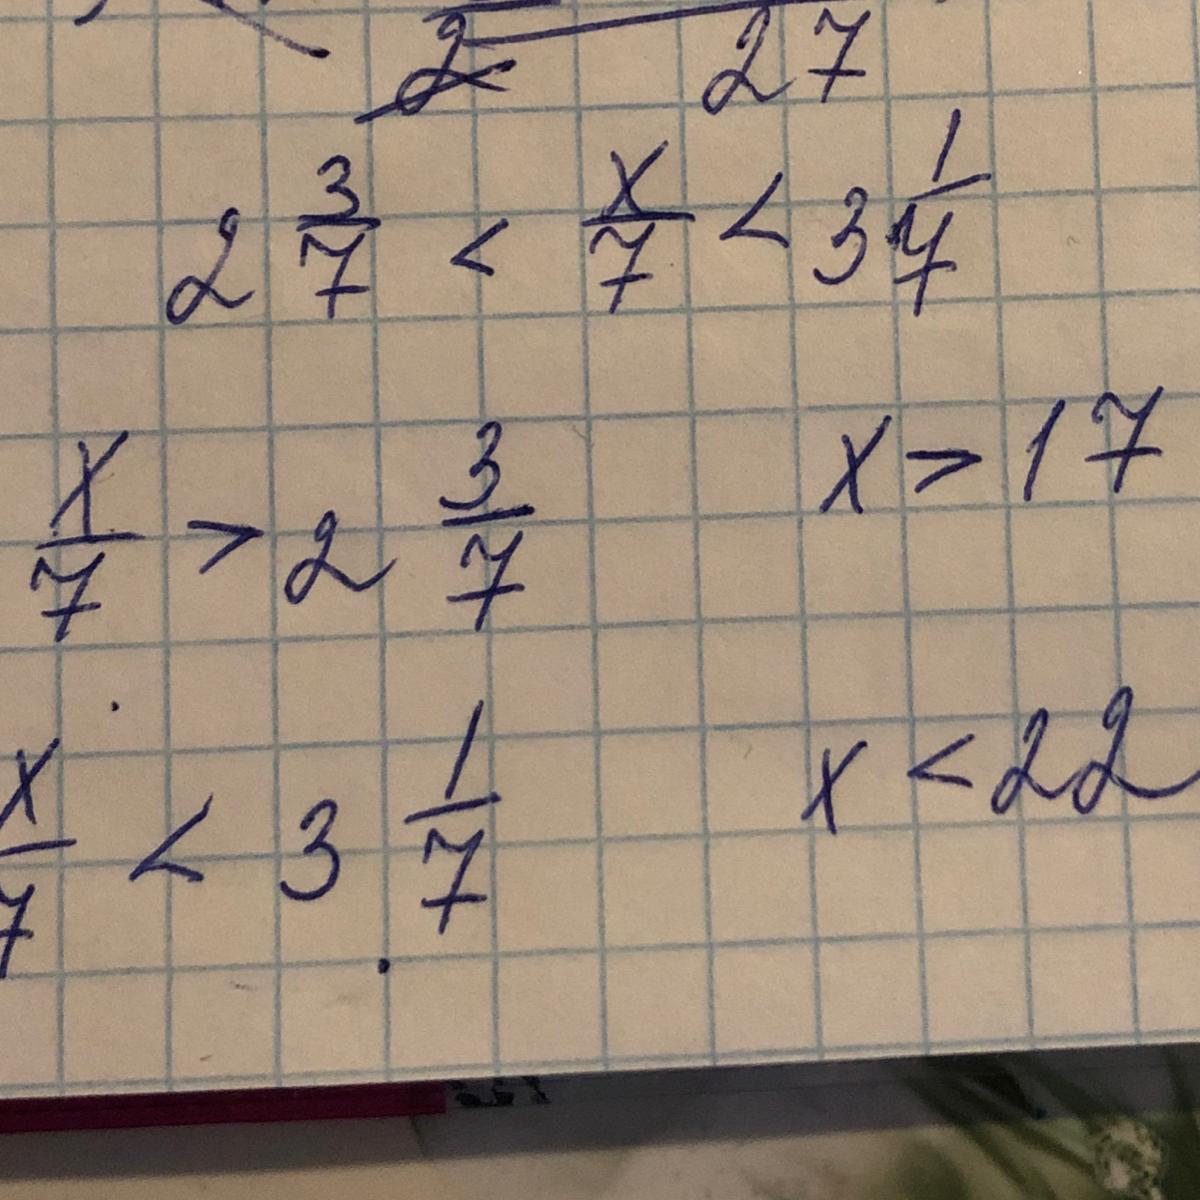 27
2 3/7 < x/7 < 3 1/7
x/7 > 2 3/7 x > 17
x/7 < 3 1/7 x < 22